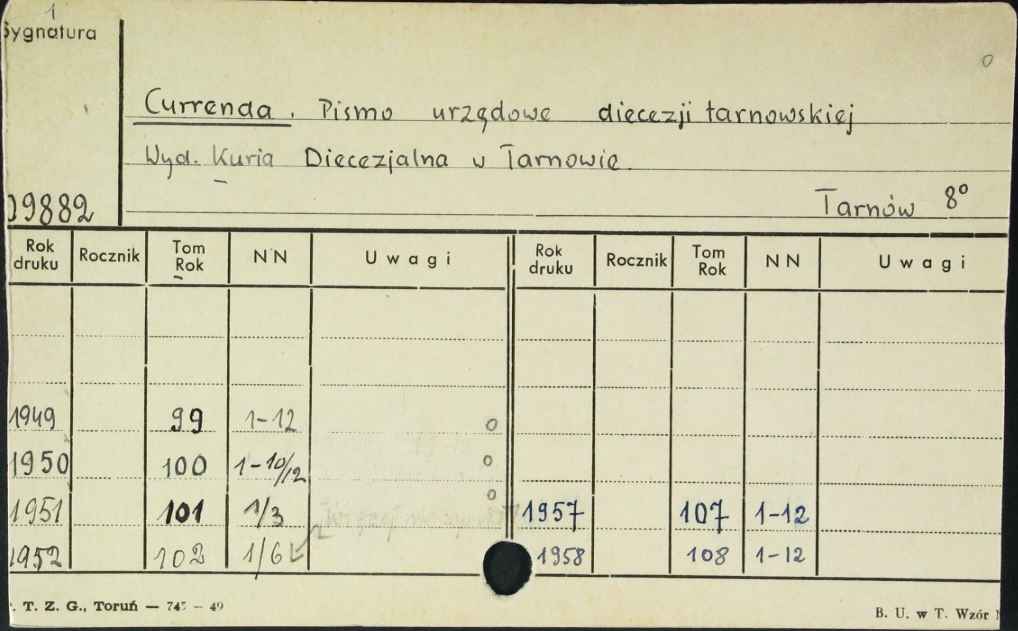 1
Sygnatura
Currenda. Pismo urzędowe diecezji tarnowskiej
Wyd. Kuria Diecezjalna w Tarnowie.
09882
Tarnów 8°
Rok druku Rocznik Tom Rok NN Uwagi Rok druku Rocznik Tom Rok NN Uwagi
1949 99 1-12 o
1950 100 1-10/12 o
1951 101 1/3 o 1957 107 1-12
1952 102 1/6 1958 108 1-12
. T. Z. G., Toruń — 745 - 49
B. U. w T. Wzór